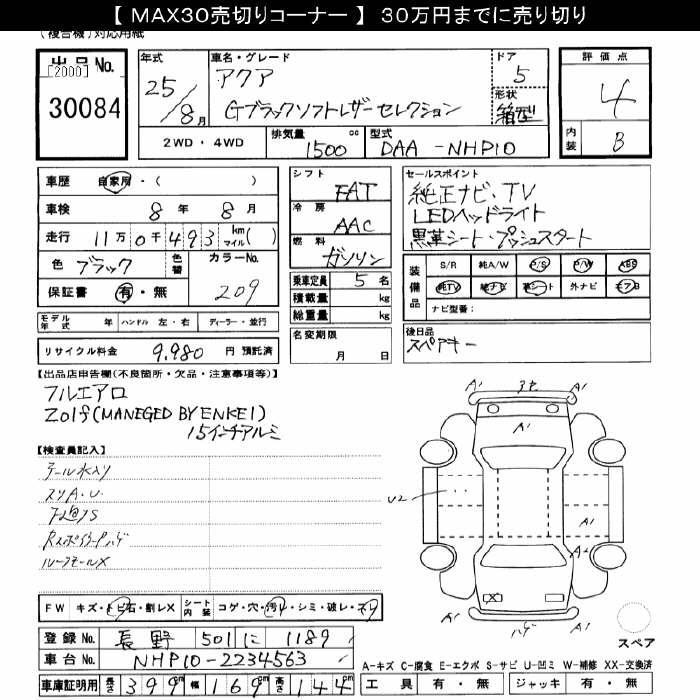 【 MAX30売切りコーナー 】 30万円までに売り切り
(複合機)対応用紙
出品No.
[2000]
30084
年式
25/8月
車名・グレード
アクア
Gブラックソフトレザーセレクション
ドア
5
形状
箱型
評価点
4
内装
B
2WD・4WD
排気量
1500
cc
型式
DAA-NHP10
車歴 自家用・( )
車検 8年 8月
走行 11万0千493 km マイル( )
色 ブラック 色替
カラーNo.
209
保証書 有・無
シフト
FAT
冷房
AAC
燃料
ガソリン
乗車定員 5名
積載量 kg
総重量 kg
セールスポイント
純正ナビ、TV
LEDヘッドライト
黒革シート・プッシュスタート
装備品
S/R 純A/W P/S P/W ABS
純TV 純ナビ 革シート 外ナビ エアB
ナビ型番:
モデル年式 年 ハンドル 左・右 ディーラー・並行
リサイクル料金 9,980 円 預託済
名変期限
月 日
後日品
スペアキー
【出品店申告欄(不良箇所・欠品・注意事項等)】
フルエアロ
Zolf(MANEGED BY ENKEI)
15インチアルミ
【検査員記入】
テール水入り
スリA.U.
ルーフモールX
A1 A1
A1
U2
A1
A1
A1
A1 A1
X
ハゲ
スペア
FW キズ・トビ石・割レX シート内装 コゲ・穴・汚レ・シミ・破レ・スリ
登録No. 長野 501 に 1189
車台No. NHP10-2234563
車庫証明用 長さ 399cm 幅 169cm 高さ 144cm
A-キズ C-腐食 E-エクボ S-サビ U-凹ミ W-補修 XX-交換済
工具 有・無 ジャッキ 有・無